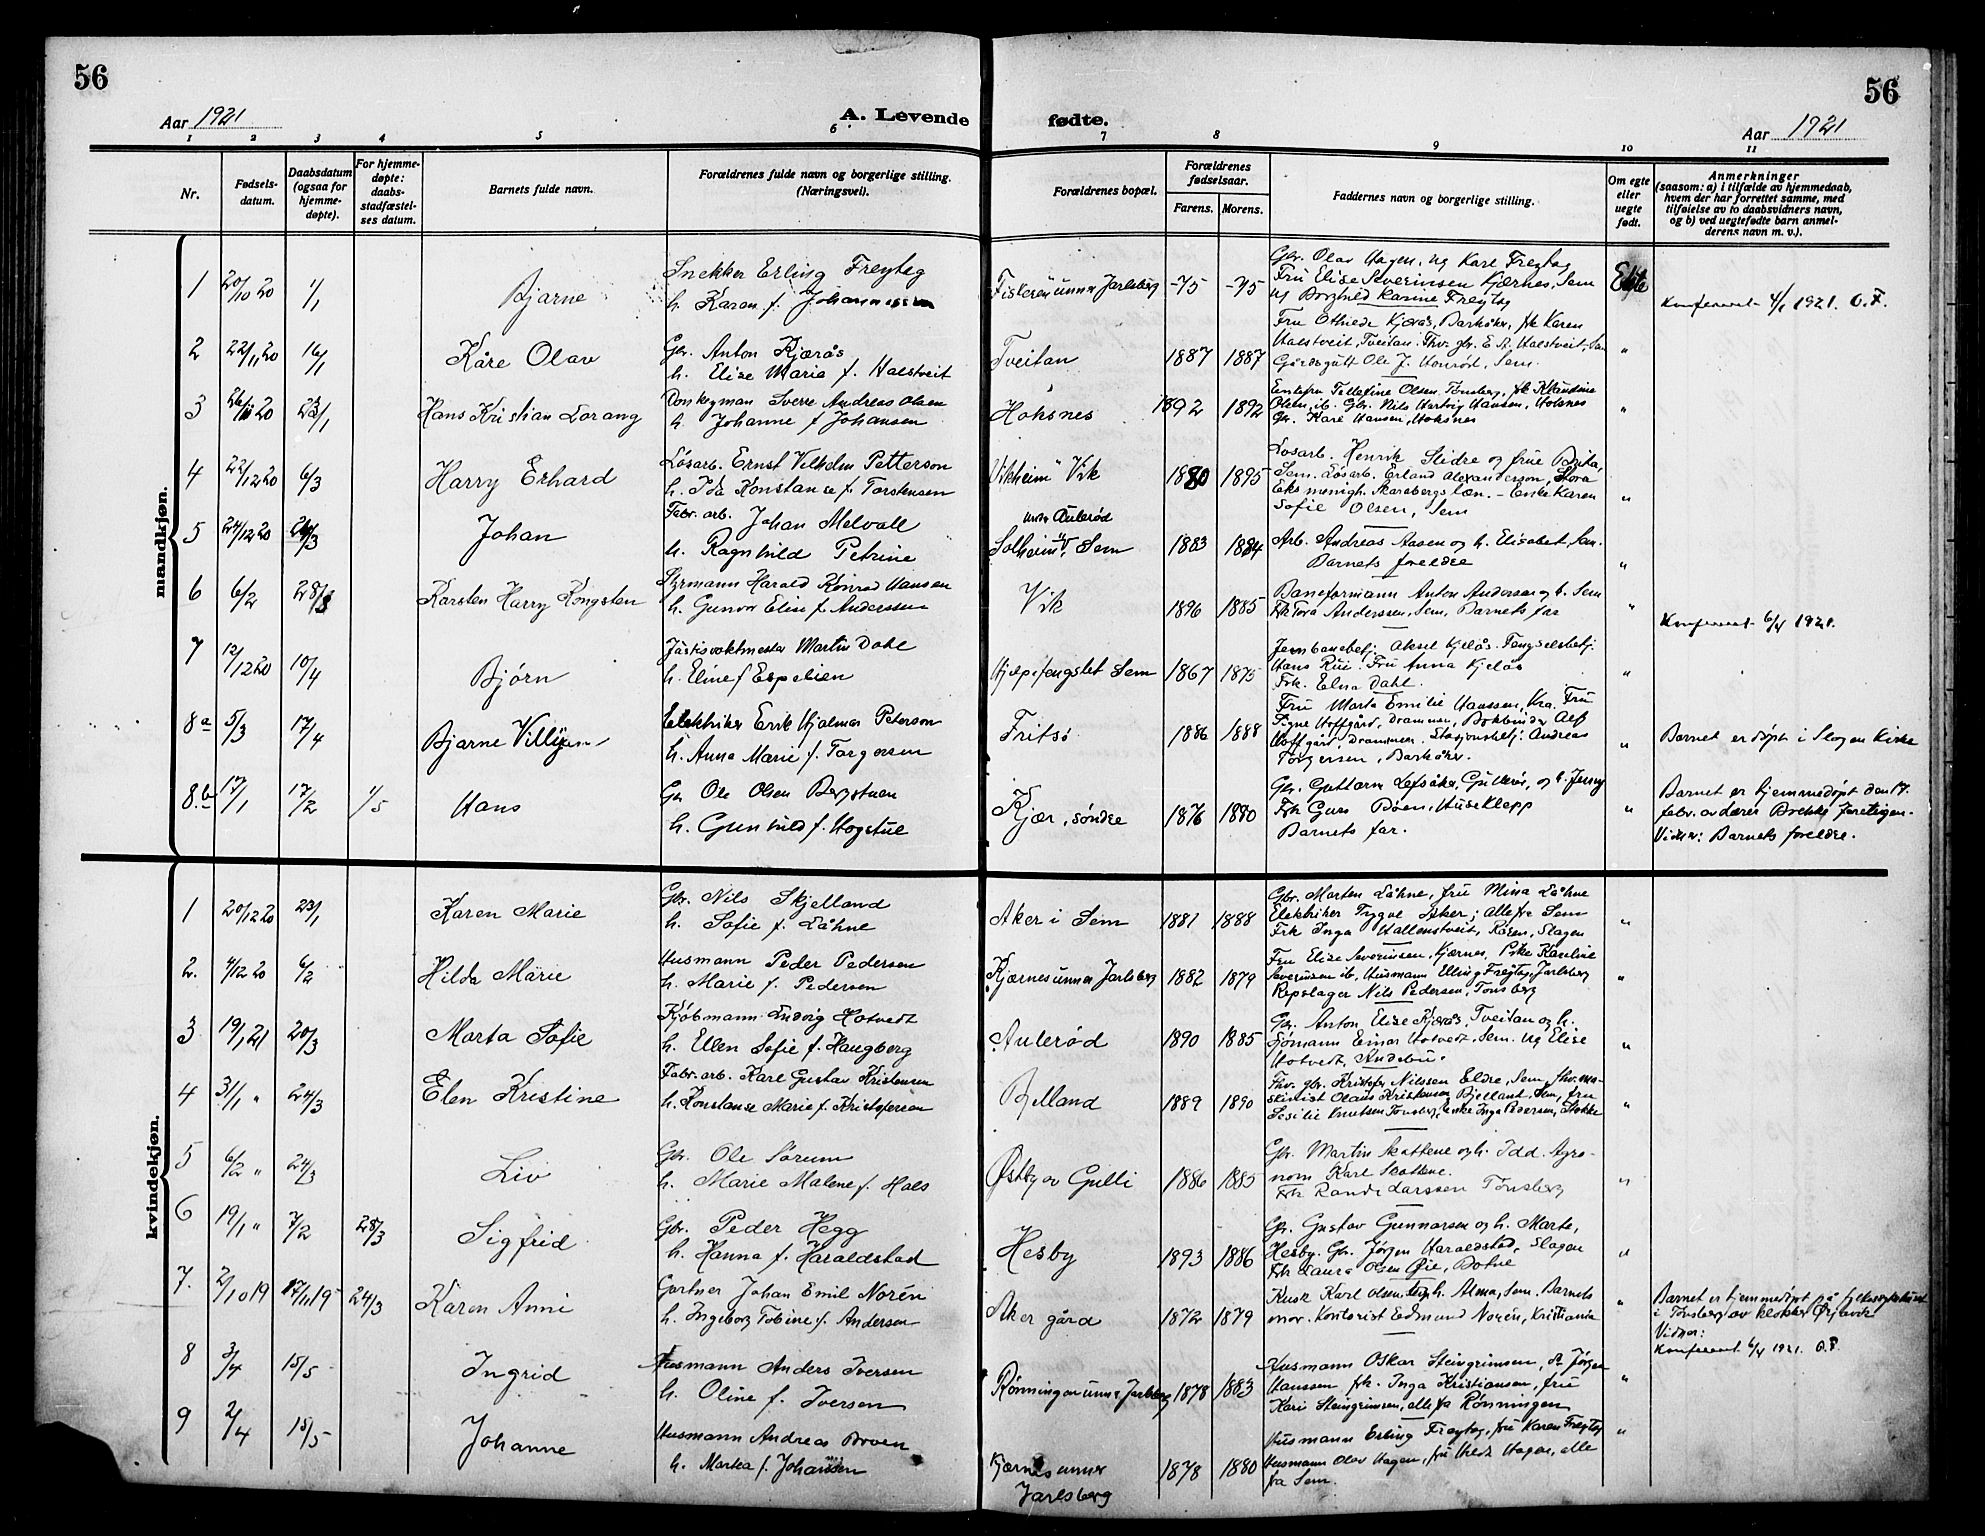 56
56
Aar 1921
A. Levende
fødte.
Aar 1921
1 2 3 4 5 6 7 8 9 10 11
Nr.
Fødsels-
datum.
Daabsdatum
(ogsaa for
hjemme-
døpte).
For hjemme-
døpte:
daabs-
stadfæstel-
ses datum.
Barnets fulde navn.
Forældrenes fulde navn og borgerlige stilling.
(Næringsvei).
Forældrenes bopæl.
Forældrenes
fødselsaar.
Farens. Morens.
Faddernes navn og borgerlige stilling.
Om egte
eller
uegte
født.
Anmerkninger
(saasom: a) i tilfælde av hjemmedaab,
hvem der har forrettet samme, med
tilføielse av to daabsvidners navn,
og b) ved uegtefødte barn anmel-
derens navn m. v.).
mandkjøn.
1 20/10 20 1/1 Bjarne
Snekker Erling Freytag
h. Karen f. Johannessen
Fiskeren unner Jarlsberg -75 -75
Gbr. Olav Hagen, ug Karl Freytag
Fru Elise Severinsen Kjærnes, Sem
ug Borghild Karine Freytag
Ekte
Konferert 4/1 1921. O. F.
2 22/11 20 16/1 Kåre Olav
Gbr. Anton Kjærås
h. Elise Maria f. Halstveit
Tveitan 1887 1887
Fru Othilde Kjærås, Barkåker, frk Karen
Halstveit, Tveitan. Fhv. gbr. E. A. Halstveit, Sem
Gårdsgutt Ole J. Honrød, Sem.
"
3 26/11 20 23/1 Hans Kristian Lorang
Donkeyman Sverre Andreas Olsen
h. Johanne f Johansen
Hoksnes 1892 1892
Enkefru Tellefine Olsen, Tønsberg, frk Klaudine
Olsen, ib. Gbr. Nils Hartvig Hansen, Hoksnes
Gr. Karl Hansen, Hoksnes
"
4 22/12 20 6/3 Harry Erhard
Løsarb. Ernst Vilhelm Petterson
h. Ida Konstanse f. Torstensen
"Vikheim" Vik 1880 1895
Løsarb. Henrik Slidre og frue Brita,
Sem. Løsarb. Erland Alexanderson, Stora
Eks menigh. Skaraborgs Læn. - Enke Karen
Sofie Olsen, Sem
"
5 24/12 20 24/3 Johan
Fabr. arb. Johan Melvall
h. Ragnhild Petrine
unner Aulerød
"Solheim", Sem 1883 1884
Arb. Andreas Aasen og h. Elisabet, Sem.
Barnets foreldre
"
6 6/2 28/3 Karsten Harry Kongsten
Styrmann Harald Konrad Hansen
h. Gunvor Elise f. Anderssen
Vik 1896 1885
Baneformann Anton Andersen og h. Sem
Frk Tora Anderssen, Sem, Barnets far
"
Konferert 6/4 1921.
7 12/12 20 10/4 Bjørn
Martin Dahl
h. Eline f Espelien
Hjelpefengslet Sem 1867 1875
Jernbanebetj. Aksel Kjelås. Fengselsbetj.
Hans Rui. Fru Anna Kjelås
Frk. Elna Dahl.
"
8a 5/3 17/4 Bjarne Villy
Elektriker Erik Hjalmar Peterson
h. Anna Marie f. Torgersen
Fritsø 1886 1888
Fru Marta Emilie Hanssen, Kra. Fru
Signe Hoffgård, Drammen, Bokbinder Alf
Hoffgård, Drammen, Stasjonsbetj. Andreas
Torgersen, Barkåker.
"
Barnet er døpt i Slagen kirke
8.b 17/1 17/2 1/5 Hans
Gbr Ole Olsen Bergstuen
h. Gunhild f. Hogstul
Kjær, søndre 1876 1880
Gbr. Guttorm Lefsåker, Gullerøs, og h. Jenny
Frk Guro Bøen, Huseklepp
Barnets far.
"
Barnet er hjemmedøpt den 17.
febr. av lærer
Vidner: Barnets foreldre.
kvindekjøn.
1 20/12 20 23/1 Karen Marie
Gbr. Nils Skjelland
h. Sofie f. Låhne
Aker i Sem 1881 1888
Gbr. Morten Låhne, fru Mina Låhne
Elektriker Trygve Aker; alle fra Sem
Frk Inga Hallenstveit, Råsen, Slagen
"
2. 4/12 20 6/2 Hilda Marie
Husmann Peder Pedersen
h. Marie f. Pedersen
Kjærnes unner Jarlsberg 1882 1879
Fru Elise Severinsen, Kjærnes, Pike Karline
Severinsen ib, Husmann Elling Freytag, Jarlsberg
Repslager Nils Pedersen, Tønsberg
"
3 19/1 21 20/3 Marta Sofie
Kjøbmann Ludvig Hotvedt
h. Ellen Sofie f. Haugberg
Aulerød 1890 1885
Gbr. Anton Elise Kjærås, Tveitan og h.
Sjømann Einar Hotvedt, Sem. ug Elise
Hotvedt, Andebu.
"
4 31/1 " 24/3 Elen Kristine
Fabr. arb. Karl Gustav Kristensen
h. Konstanse Marie f. Kristofersen
Bjelland 1889 1890
Fhv. gbr. Kristofer Nilssen Eldre, Sem, fhv. ma-
skinist Olaus Kristiansen, Bjelland, Sem, fru
Sesilie Knutsen Tønsberg, Enke Inga Pedersen, Stokke
"
5 6/2 " 24/3 Liv
Gbr. Ole Sørum
h. Marie Malene f. Hals
Østby av Gulli 1886 1885
Gbr. Martin Skottene og h. Idd. Agro-
nom Karl Skottene.
Frk Randi Larssen Tønsberg
"
6 19/1 " 7/2 28/3 Sigfrid
Gbr. Peder Hegg
h. Hanna f. Haraldstad
Hesby 1893 1886
Gbr. Gustav Gunnarsen og h. Marte,
Hesby. Gbr. Jørgen Haraldstad, Slagen
Frk Laura Olsen Øie, Botne
"
7. 2/10 19 17/11 19 24/3 Karen Anni
Gartner Johan Emil Norén
h. Ingeborg Tobine f. Andersen
Aker gård 1872 1879
Kusk Karl Olsen og h. Alma, Sem, Barnets
mor. Kontorist Edmund Norén, Kristiania
"
Barnet er hjemmedøpt på fylkessykehuset
i Tønsberg av klokker
Vidner:
Konferert 6/4 1921. O. F.
8 3/4 15/5 Ingrid
Husmann Anders Iversen
h. Oline f. Iversen
Rønningen unner Jarlsberg 1878 1883
Husmann Oskar Steingrimsen, Jørgen
Hanssen frk. Inga Kristiansen, fru
Kari Steingrimsen, alle fra Rønningen
"
9 2/4 15/5 Johanne
Husmann Andreas Broen
h. Martea f. Johansen
Kjærnes unner
Jarlsberg 1878 1880
Husmann Erling Freytag, fru Karen Freytag
Husmann Olav Hagen, fru Hagen, alle
fra Sem.
"